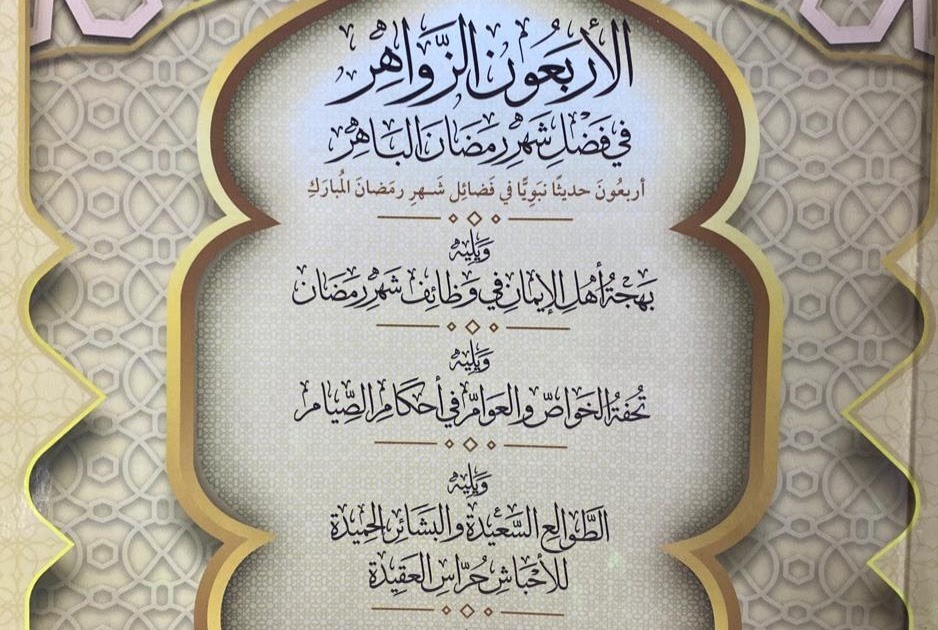 الأربعون الزَّواهر
في فَضْلِ شهرِ رمَضَانَ البَاهِرْ
أربعُونَ حديثًا نبَوِيًّا في فَضائِل شَـهرِ رمَضانَ المُبارَكِ
وَيَليْه
بَهجَةُ أهْلِ الإيمانِ في وَظائِف شَهْرِ رمَضَان
وَيَليْه
تُحْفَةُ الخَواصّ والعَوامّ في أحْكَامِ الصِّيام
وَيَليْه
الطَّوالِع السَّعيدَة والبَشائر الحَميدَة
للأحْباشِ حُرَّاسِ العَقيدَة